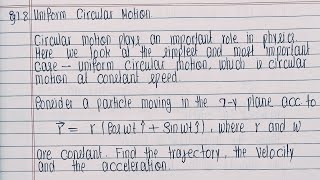 Eg 1.8 Uniform Circular Motion.
Circular motion plays an important role in physics.
Here we look at the simplest and most important
case -- uniform circular motion, which is circular
motion at constant speed.
Consider a particle moving in the x-y plane acc to
r⃗ = r (Cos wt î + Sin wt ĵ), where r and w
are constant. Find the trajectory, the velocity
and the acceleration.